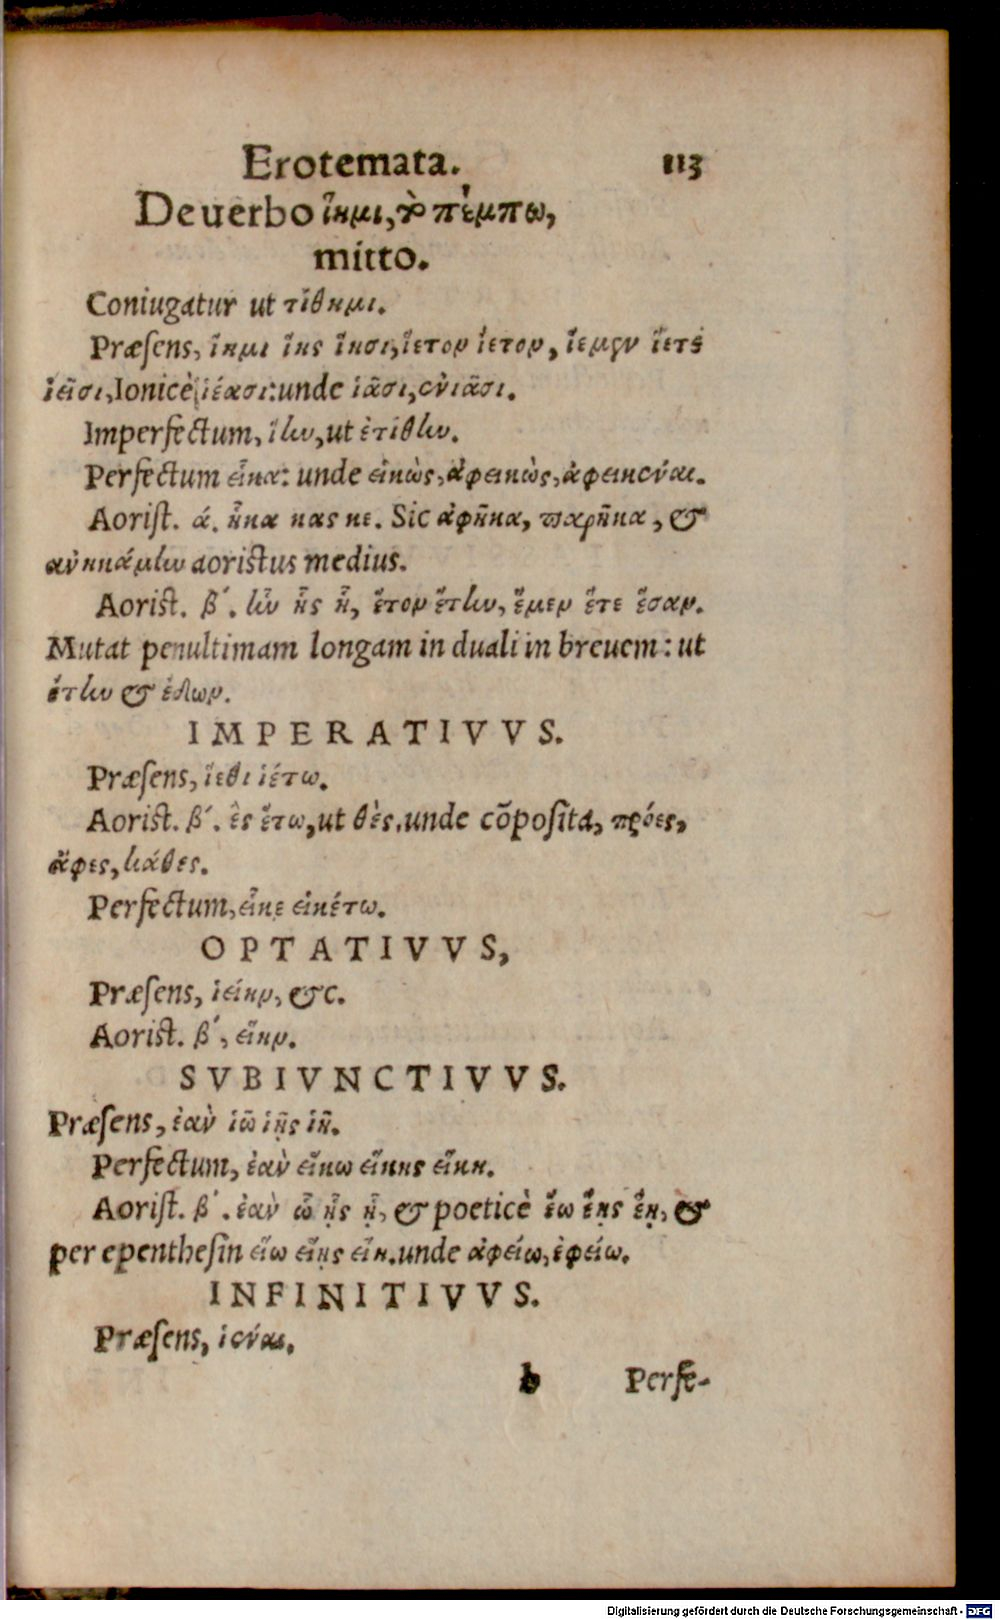 Erotemata. 113
De uerbo ἵημι, τὸ πέμπω,
mitto.
Coniugatur ut τίθημι.
Præsens, ἵημι ἵης ἵησι, ἵετον ἵετον, ἵεμεν ἵετε
ἱεῖσι, Ionicè ἱέασι: unde ἱᾶσι, ἐνιᾶσι.
Imperfectum, ἵην, ut ἐτίθην.
Perfectum εἷκα: unde εἱκὼς, ἀφεικὼς, ἀφεικέναι.
Aorist. ά. ἧκα κας κε. Sic ἀφῆκα, παρῆκα, &
ἀνηκάμην aoristus medius.
Aorist. β΄. ἣν ἧς ἧ, ἕτον ἕτην, ἕμεν ἕτε ἕσαν.
Mutat penultimam longam in duali in breuem: ut
ἕτην & ἔδων.
IMPERATIVVS.
Præsens, ἵεθι ἱέτω.
Aorist. β΄. ἓς ἕτω, ut θὲς. unde cōposita, πρόες,
ἄφες, κάθες.
Perfectum, εἷκε εἱκέτω.
OPTATIVVS,
Præsens, ἱείην, &c.
Aorist. β΄, εἵην.
SVBIVNCTIVVS.
Præsens, ἐὰν ἱῶ ἱῇς ἱῇ.
Perfectum, ἐὰν εἵκω εἵκης εἵκη.
Aorist. β΄. ἐὰν ὧ ᾗς ᾗ, & poeticè ἕω ἕῃς ἕῃ, &
per epenthesin εἵω εἵῃς εἵη. unde ἀφείω, ἐφείω.
INFINITIVVS.
Præsens, ἱέναι.
h Perfe-
Digitalisierung gefördert durch die Deutsche Forschungsgemeinschaft - DFG